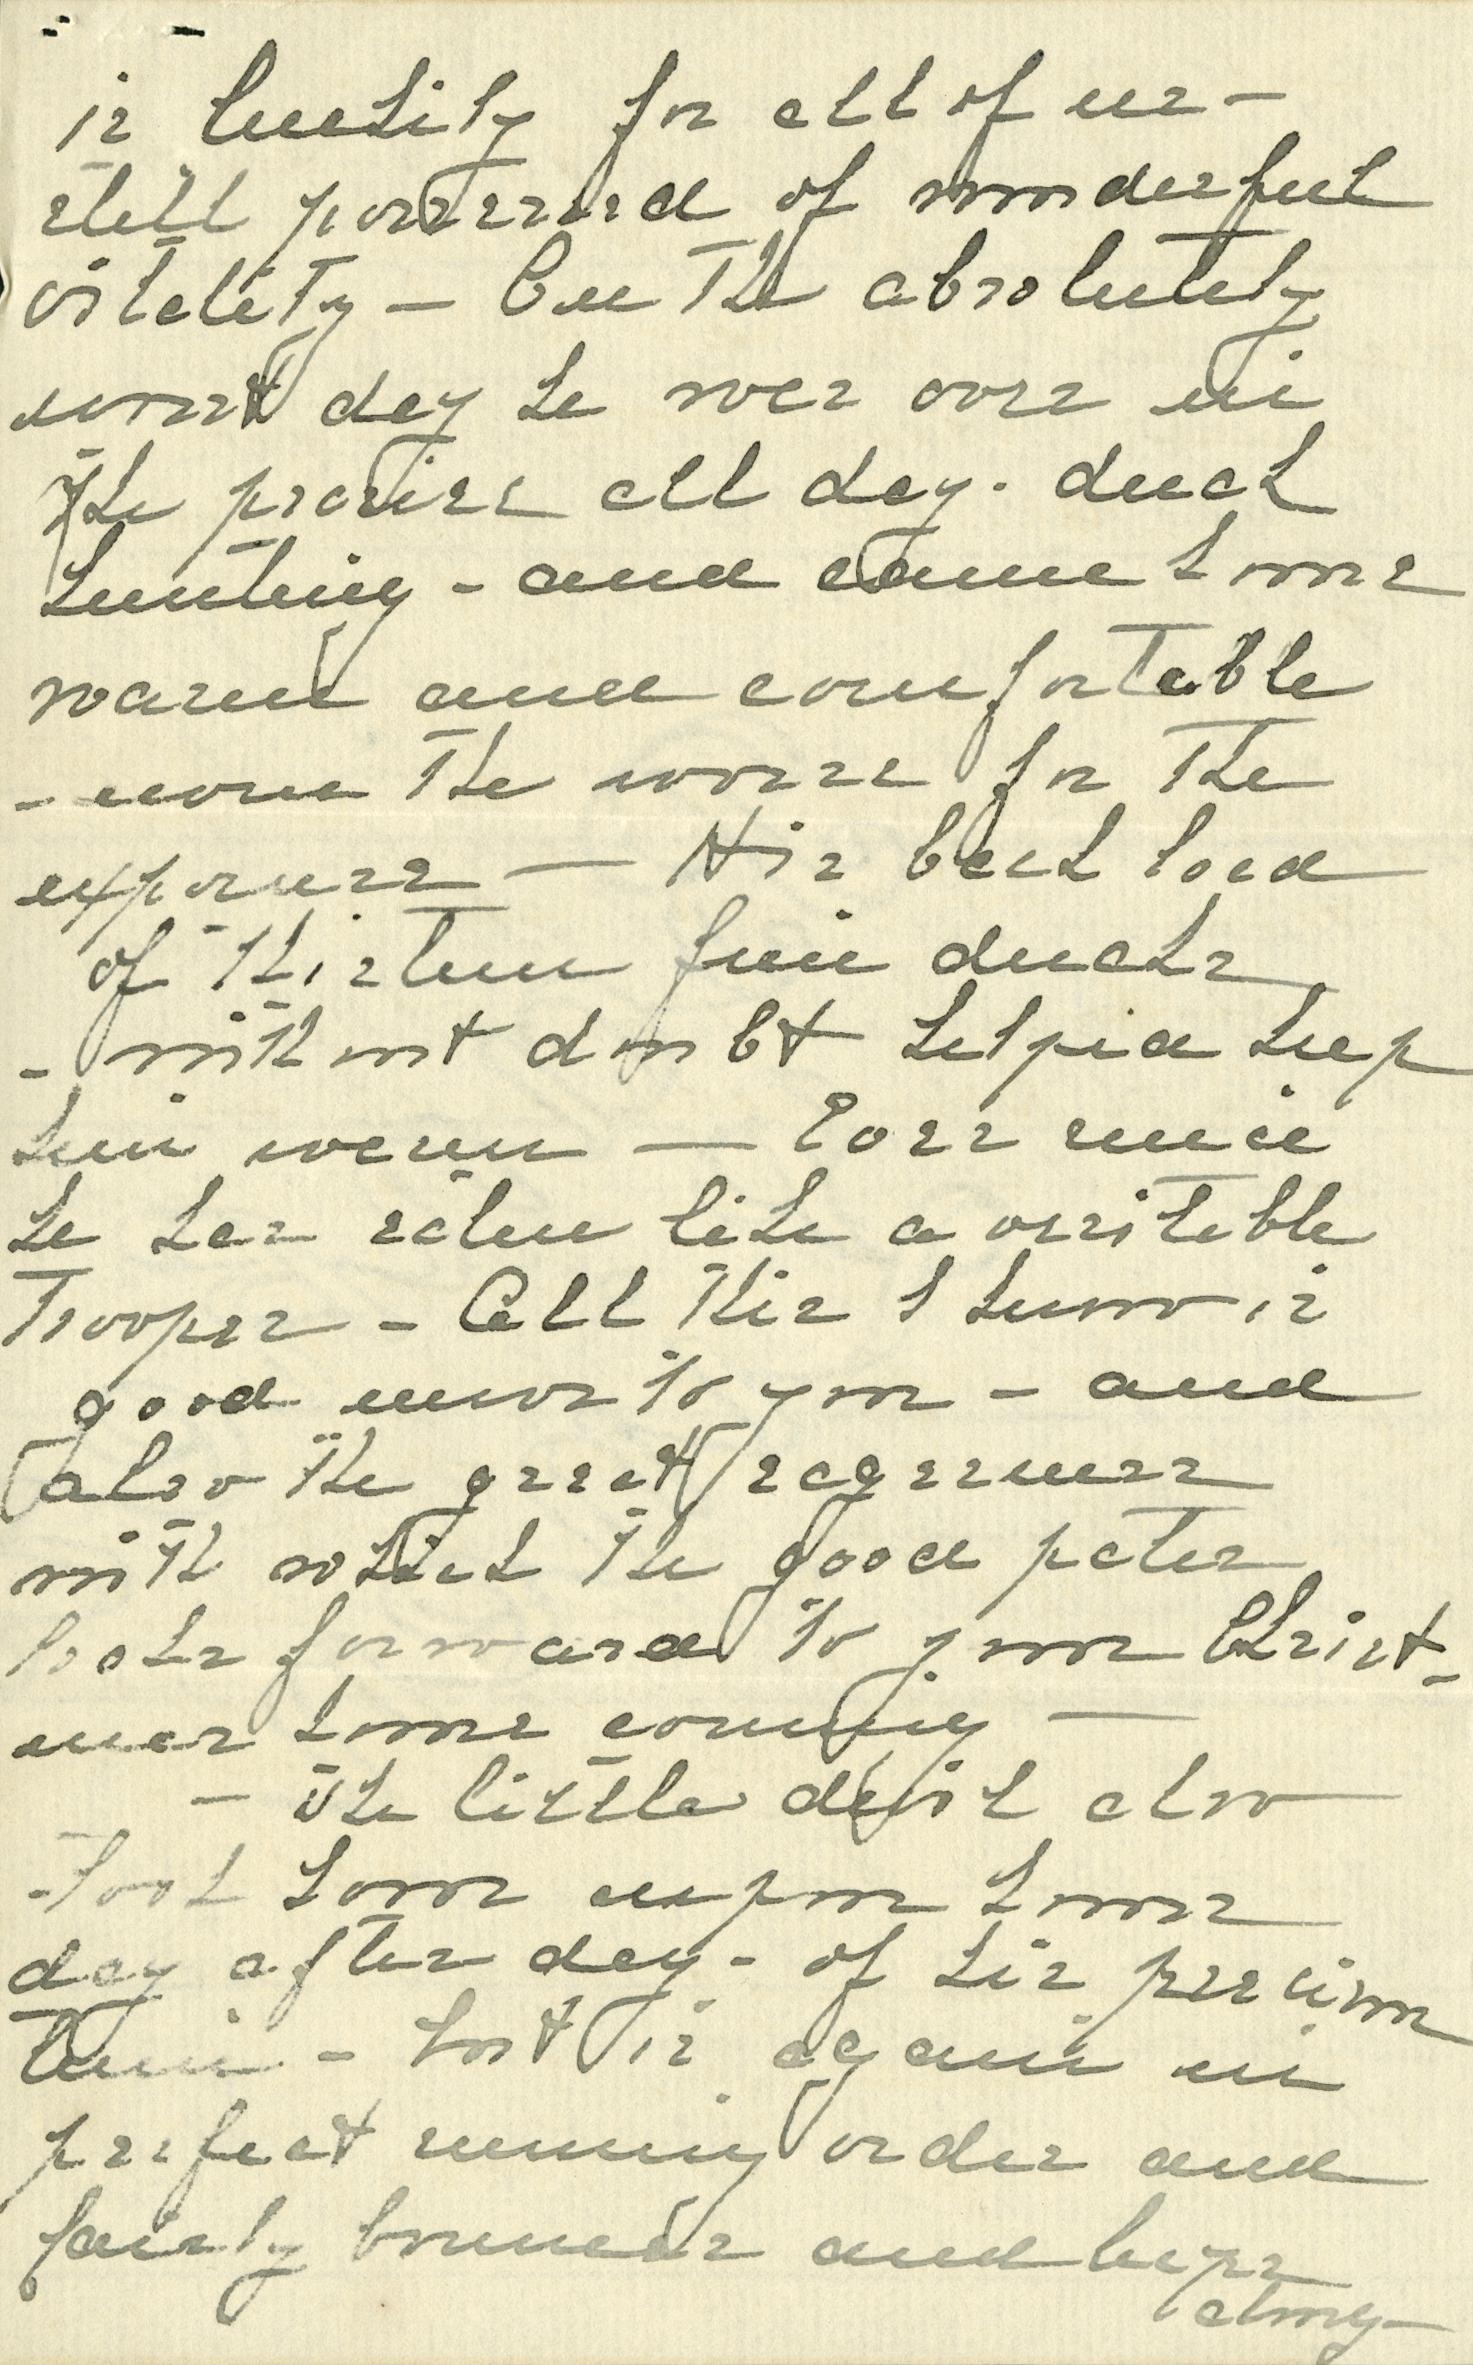 is lustily for all of us -
still possessed of wonderful
vitality - On the absolutely
worst day he was over in
the prairie all day. duck
hunting - and came home
warm and comfortable
- none the worse for the
exposure - His back load
of thirteen fine ducks
- without doubt helped keep
him warm - Ever since
he has eaten like a veritable
Trooper - All this I know is
good news to you - and
also the great eagerness
with which the good pater
looks forward to your Christ-
mas home coming -
- The little devil also
Took hour upon hour
day after day - of his precious
Time - but is again in
perfect running order and
fairly bounces and leaps
along -